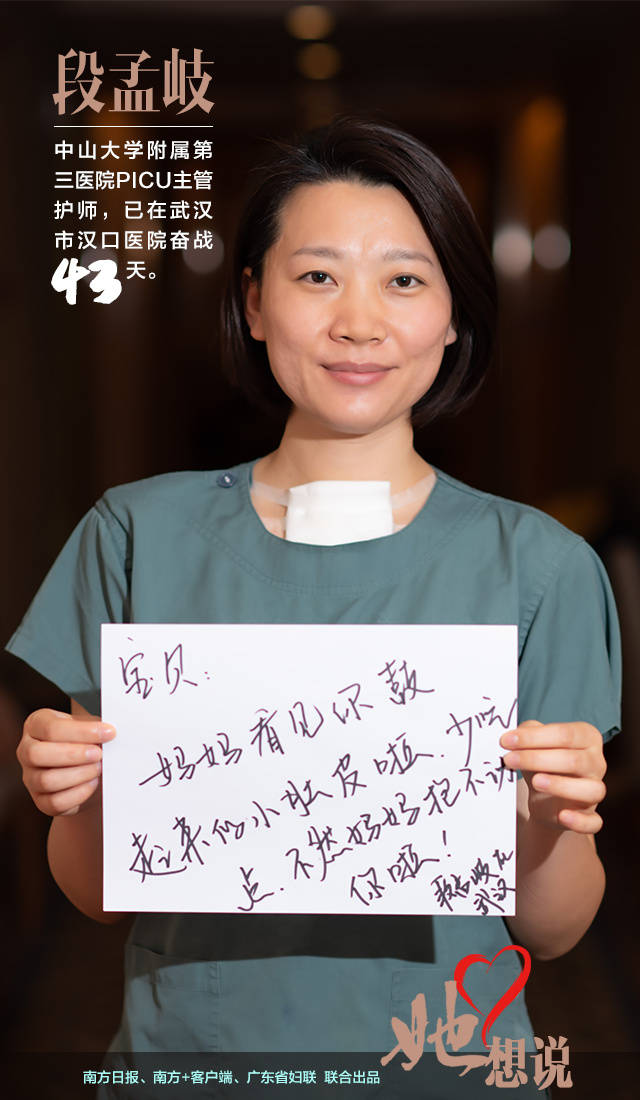 段孟岐
中山大学附属第
三医院PICU主管
护师，已在武汉
市汉口医院奋战
43天。
宝贝：
妈妈看见你鼓
起来的小肚皮啦．少吃
点．不然妈妈抱不动
你啦！
段孟岐 于
武汉
她想说
南方日报、南方+客户端、广东省妇联 联合出品